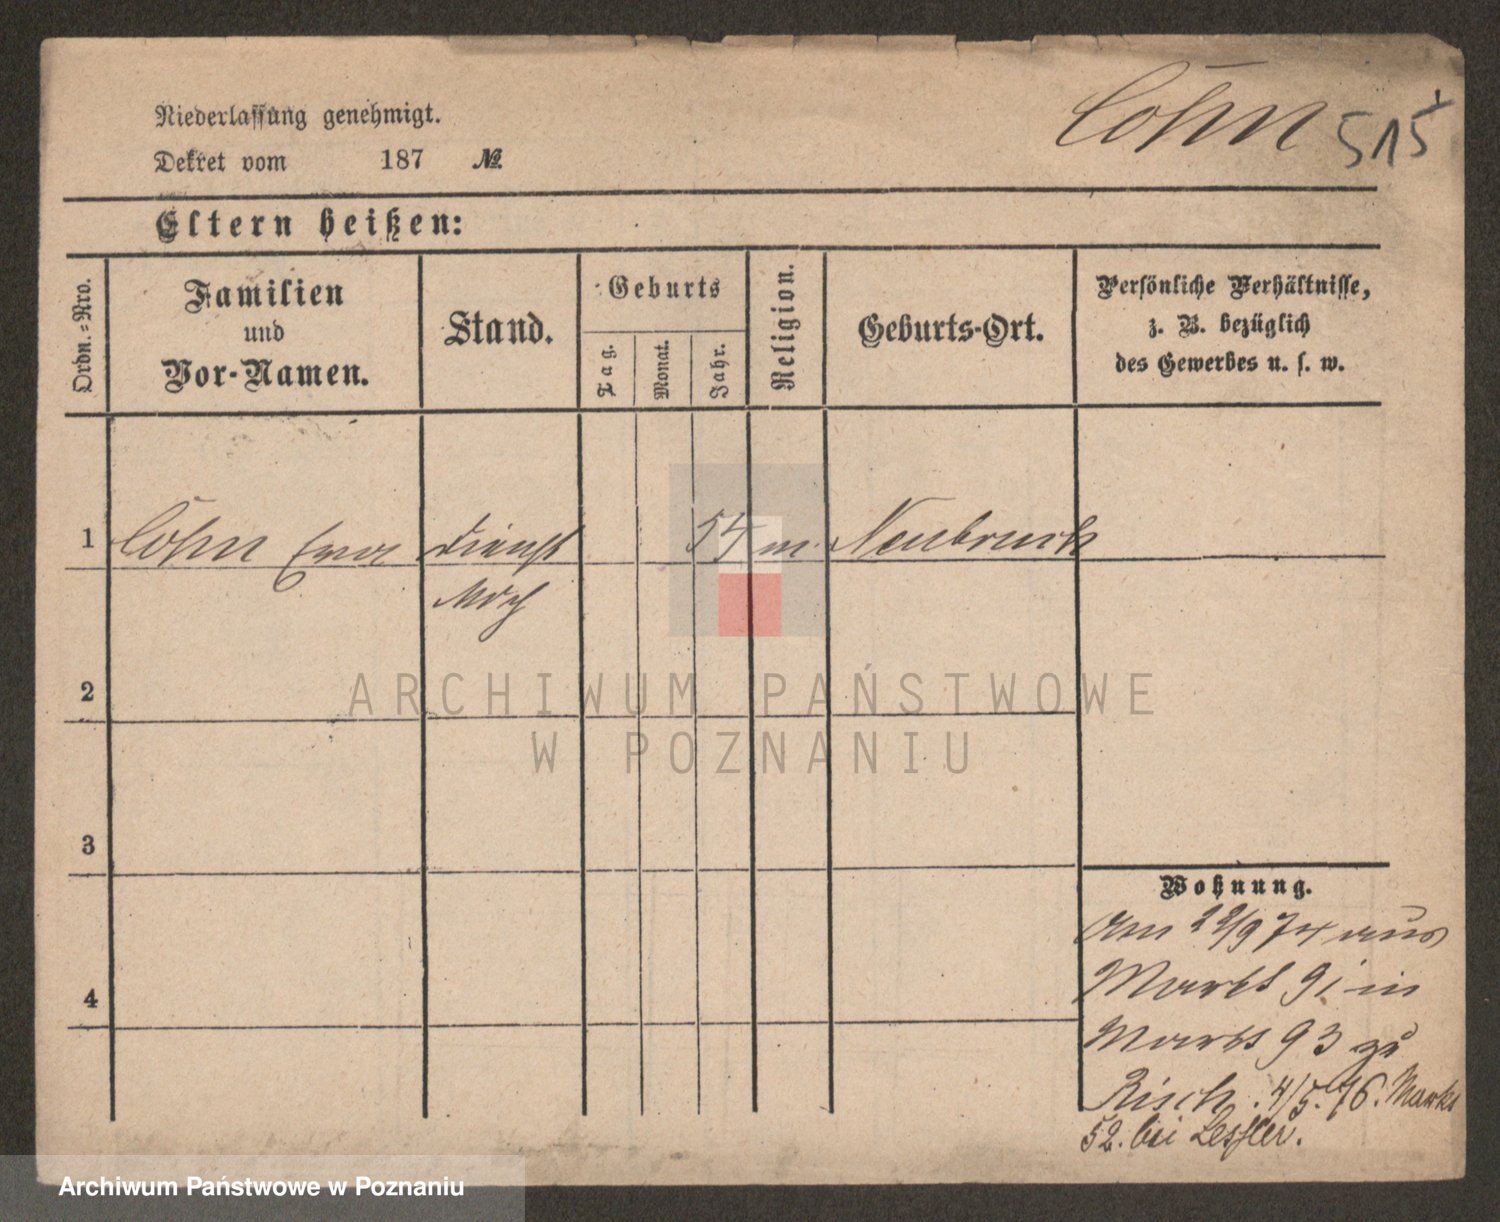 Niederlassung genehmigt.
Cohn 515
Dekret vom 187 №
Eltern heißen:
Ordn.=Nro.
Familien
und
Vor-Namen.
Stand.
Geburts
Tag.
Monat.
Jahr.
Religion.
Geburts-Ort.
Persönliche Verhältnisse,
z. B. bezüglich
des Gewerbes u. s. w.
1 Cohn Eva Dienst 54 m. Neubruck
Mdch
2
ARCHIWUM PAŃSTWOWE
W POZNANIU
3
Wohnung.
Am 22/9 74 aus
Markt 91 in
4
Markt 93 zu
Risch. 4/5. 76. Markt
52. bei Lessler.
Archiwum Państwowe w Poznaniu